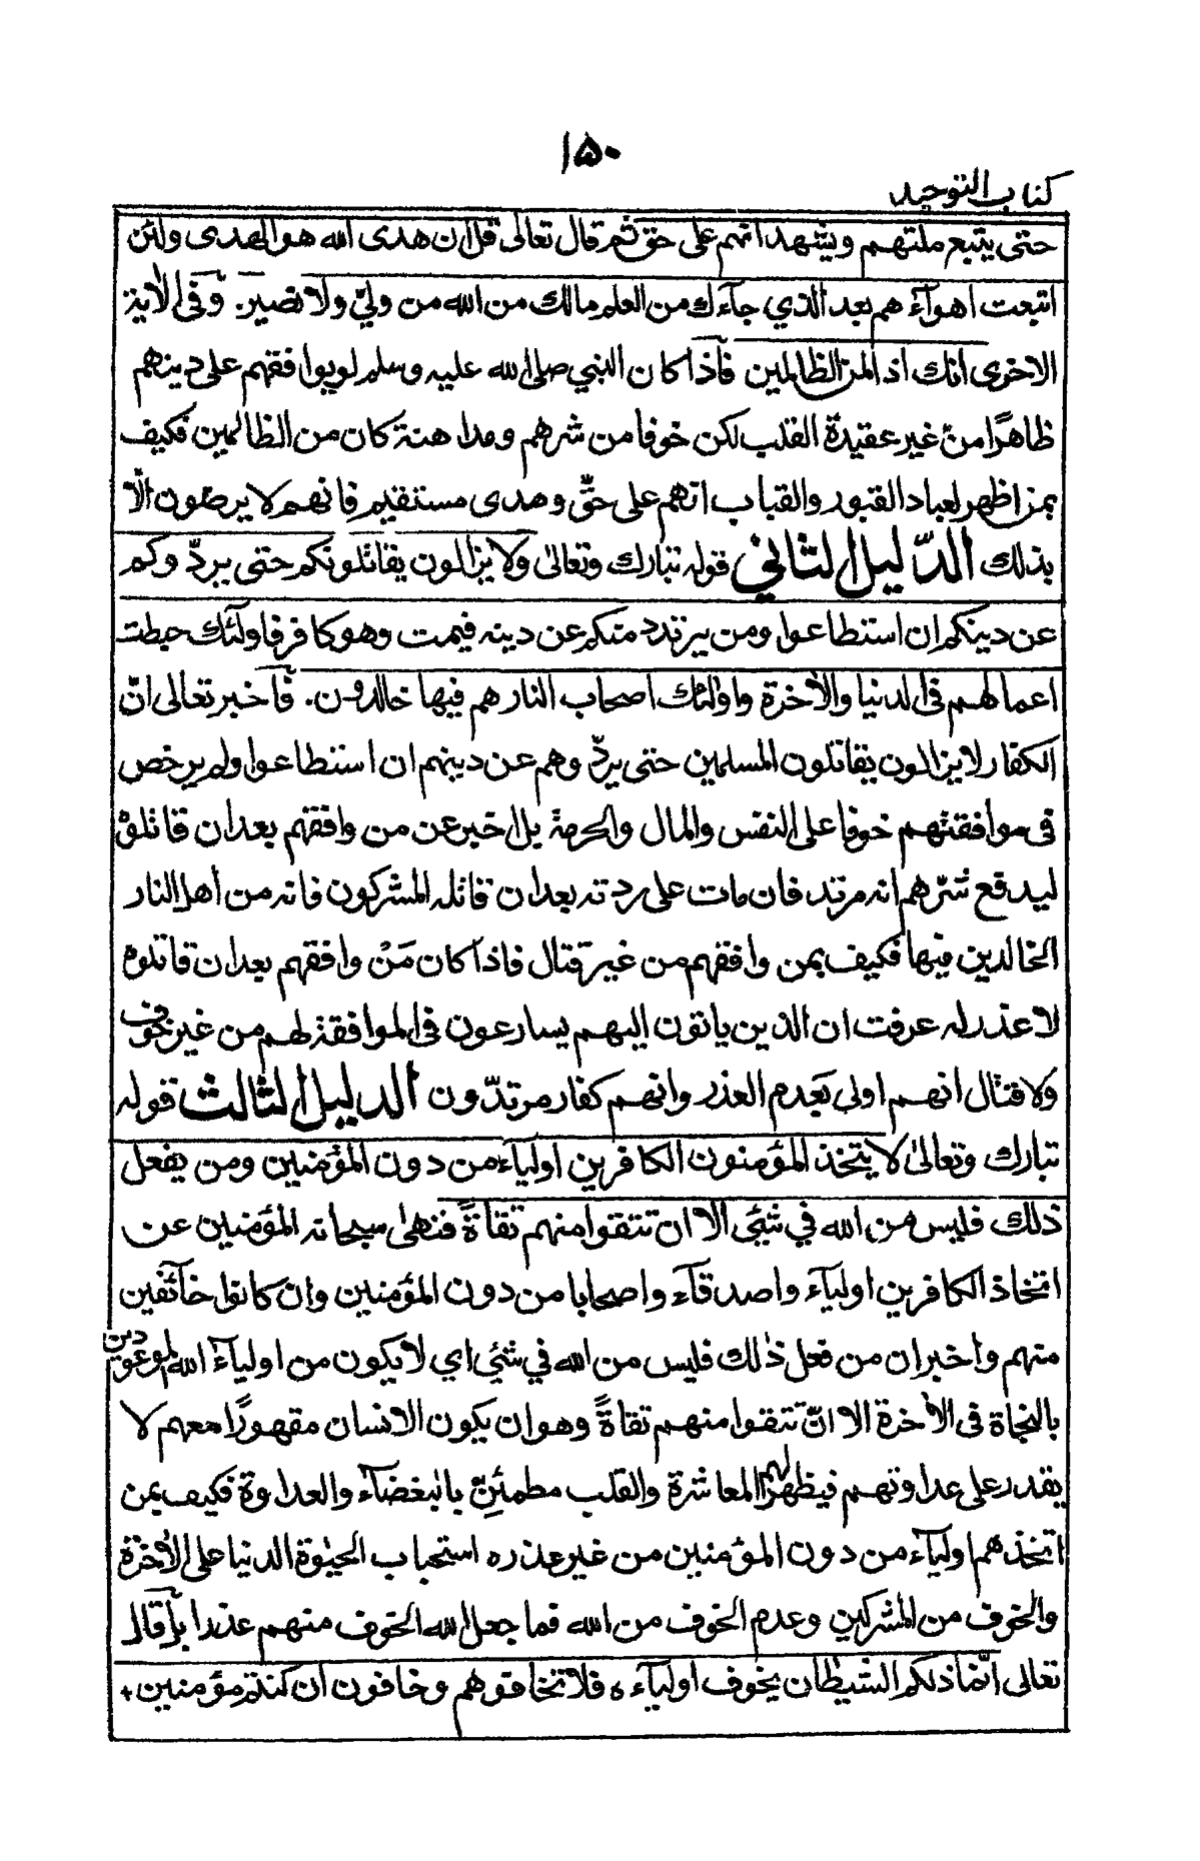 ١٥٠
كتاب التوحيد
حتى يتبع ملتهم ويشهد انهم على حق ثم قال تعالى قل ان هدى الله هو الهدى ولئن
اتبعت اهوآءهم بعد الذي جآءك من العلم مالك من الله من وليّ ولا نصير. وفى الآية
الاخرى انك اذا لمن الظالمين فآذا كان النبي صلى الله عليه وسلم لو يوافقهم على دينهم
ظاهرًا من غير عقيدة القلب لكن خوفا من شرهم ومداهنة كان من الظالمين فكيف
بمن اظهر لعباد القبور والقباب انهم على حقّ وهدى مستقيم فانهم لا يرضون الّا
بذلك الدّليل الثاني قوله تبارك وتعالىٰ ولا يزالون يقاتلونكم حتى يردّوكم
عن دينكم ان استطاعوا ومن يرتدد منكم عن دينه فيمت وهو كافر فاولئك حبطت
اعمالهم فى الدنيا والآخرة واولئك اصحاب النار هم فيها خالدون. فآخبر تعالى انّ
الكفار لا يزالون يقاتلون المسلمين حتى يردّوهم عن دينهم ان استطاعوا ولم يرخص
فى موافقتهم خوفا على النفس والمال والحرمة بل اخبر عن من وافقهم بعد ان قاتلوْ
ليدفع شرّهم انه مرتد فان مات على ردته بعد ان قاتله المشركون فانه من اهل النار
الخالدين فيها فكيف بمن وافقهم من غير قتال فاذا كان مَنْ وافقهم بعد ان قاتلوه
لا عذر له عرفت ان الذين ياتون اليهم يسارعون فى الموافقة لهم من غير خوف
ولا قتال انهم اولى بعدم العذر وانهم كفار مرتدّون الدليل الثالث قوله
تبارك وتعالىٰ لا يتخذ المؤمنون الكافرين اولياء من دون المؤمنين ومن يفعل
ذلك فليس من الله في شيئ الا ان تتقوا منهم تقاةً فنهىٰ سبحانه المؤمنين عن
اتخاذ الكافرين اوليآء واصدقآء واصحابا من دون المؤمنين وان كانوا خآئفين
منهم واخبر ان من فعل ذٰلك فليس من الله في شئي اي لا يكون من اوليآء الله الموعودين
بالنجاة فى الآخرة الا انْ تتقوا منهم تقاةً وهو ان يكون الانسان مقهورًا معهم لا
يقدر على عداوتهم فيظهر لهم المعاشرة والقلب مطمئنّ بالبغضآء والعداوة فكيف بمن
اتخذهم اوليآء من دون المؤمنين من غير عذر ه استحباب الحيٰوة الدنيا على الآخرة
والخوف من المشركين وعدم الخوف من الله فما جعل الله الخوف منهم عذرا بل قال
تعالى انّما ذلكم الشيطان يخوف اوليآءه فلا تخافوهم وخافون ان كنتم مؤمنين +